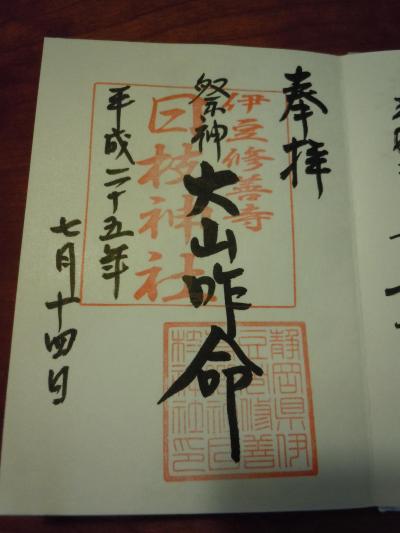 奉拝
伊豆修善寺
日枝神社
祭神 大山咋命
平成二十五年
七月十四日
静岡県伊
豆市修善
寺
枝神社印